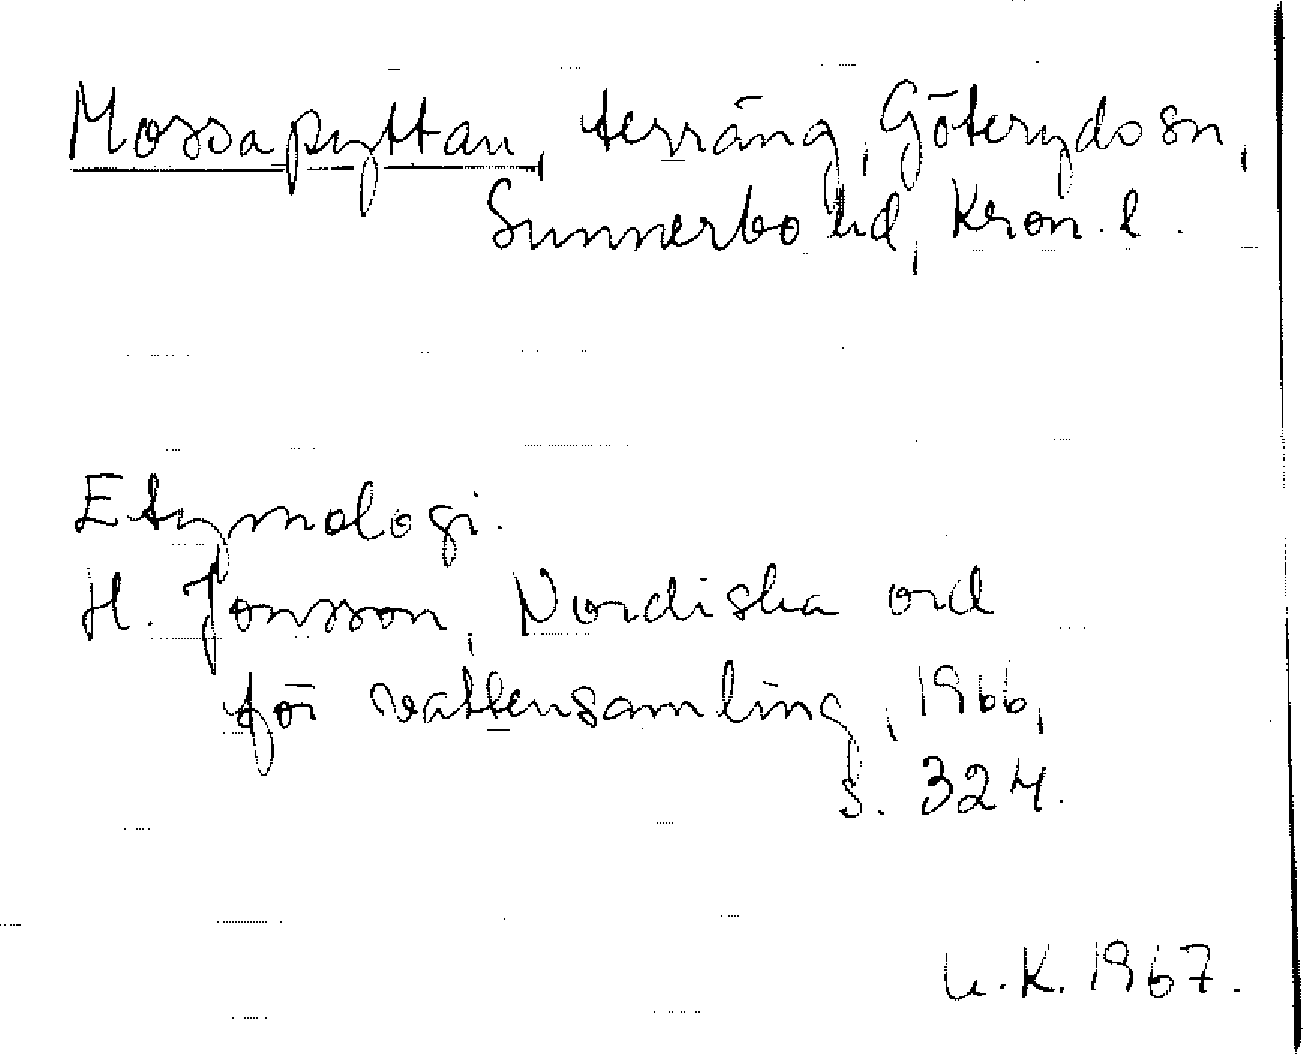 Mossapyttan, terräng, Göteryds sn,
Sunnerbo hd, Kron. l.
Etymologi.
H. Jonsson, Nordiska ord
för vattensamling, 1966,
s. 324.
U.K. 1967.